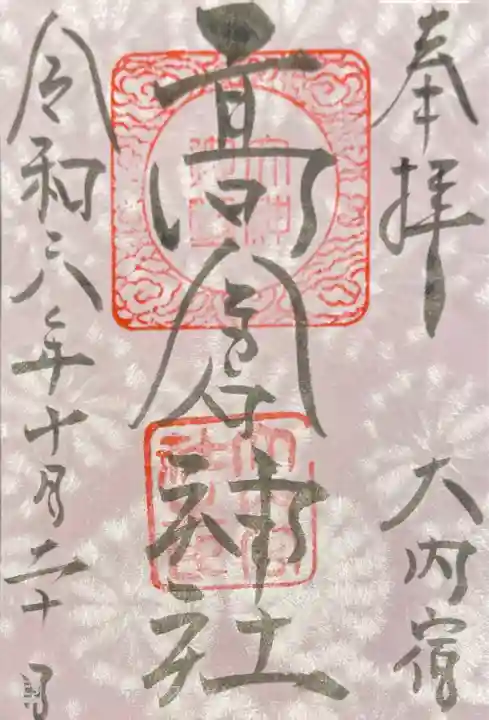 奉拝
大内宿
高倉神社
令和六年十月二十日